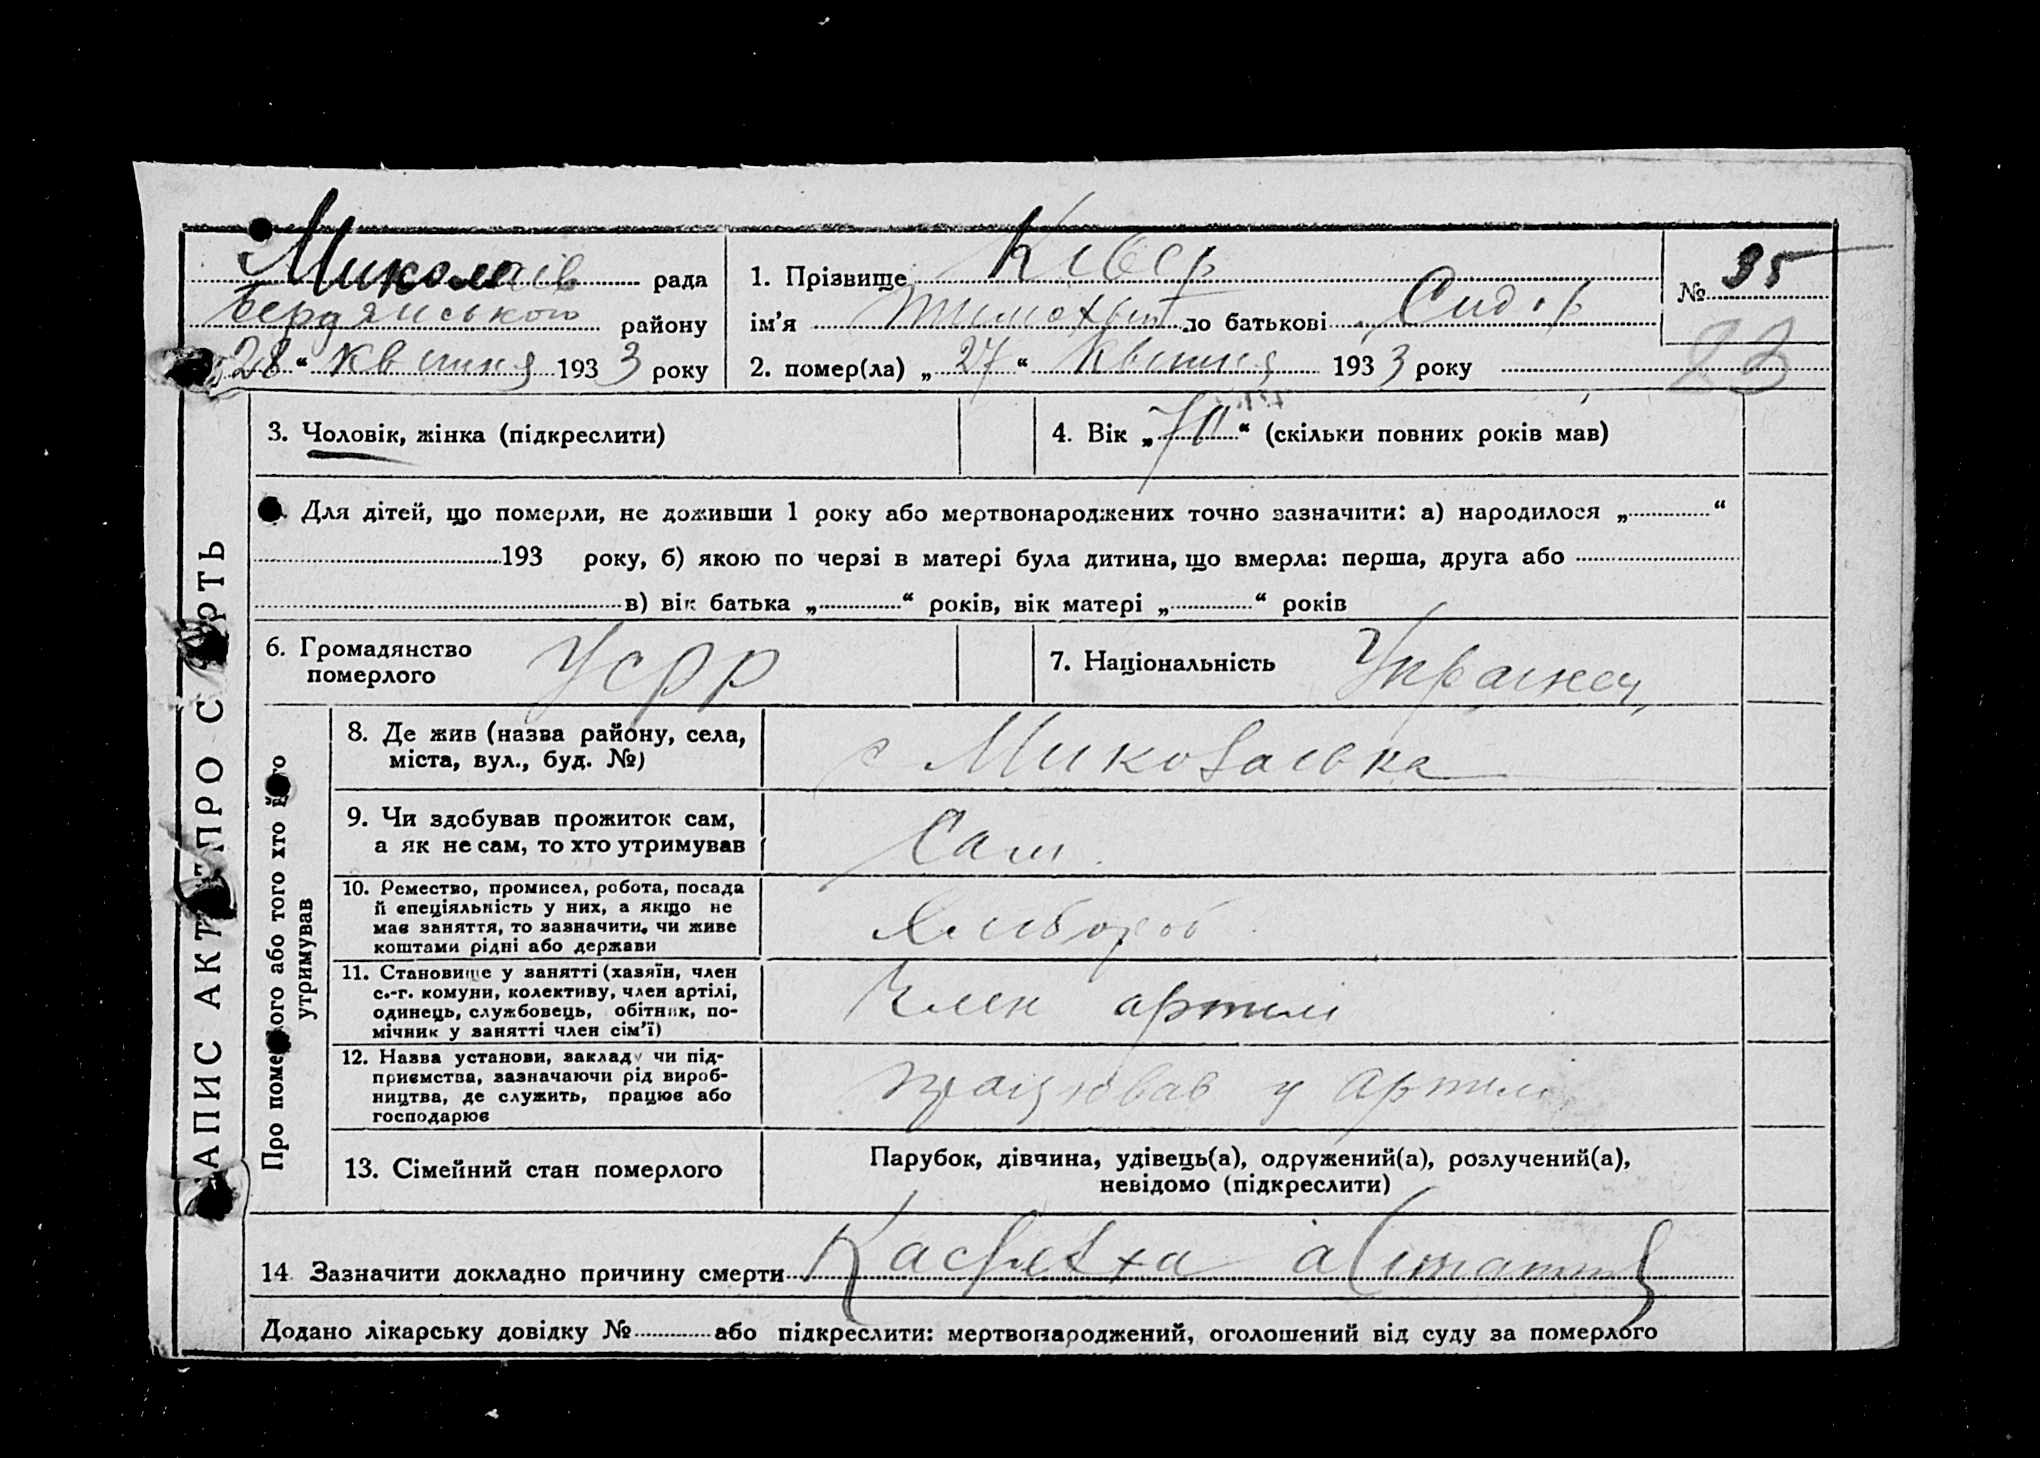 ЗАПИС АКТУ ПРО СМЕРТЬ
Миколаїв рада
Бердянського району
28 “ квітня 1933 року
1. Прізвище
ім’я Тимохвій по батькові Сидор
2. помер(ла) „ 27 “ квітня 1933 року
№ 35
23
3. Чоловік, жінка (підкреслити)
4. Вік „ 70 “ (скільки повних років мав)
Для дітей, що померли, не доживши 1 року або мертвонароджених точно зазначити: а) народилося „ “
193 року, б) якою по черзі в матері була дитина, що вмерла: перша, друга або
в) вік батька „ “ років, вік матері „ “ років
6. Громадянство
померлого
УСРР
7. Національність Українец
Про померлого або того хто його
утримував
8. Де жив (назва району, села,
міста, вул., буд. №)
с Миколаївка
9. Чи здобував прожиток сам,
а як не сам, то хто утримував
Сам
10. Ремество, промисел, робота, посада
й спеціяльність у них, а якщо не
має заняття, то зазначити, чи живе
коштами рідні або держави
Хлибороб
11. Становище у занятті (хазяїн, член
с.-г. комуни, колективу, член артілі,
одинець, службовець, обітник, по-
мічник у занятті член сім’ї)
Член артилі
12. Назва установи, закладу чи під-
приємства, зазначаючи рід вироб-
ництва, де служить, працює або
господарює
працював у артилі
13. Сімейний стан померлого
Парубок, дівчина, удівець(а), одружений(а), розлучений(а),
невідомо (підкреслити)
14. Зазначити докладно причину смерти
Додано лікарську довідку № або підкреслити: мертвонароджений, оголошений від суду за померлого